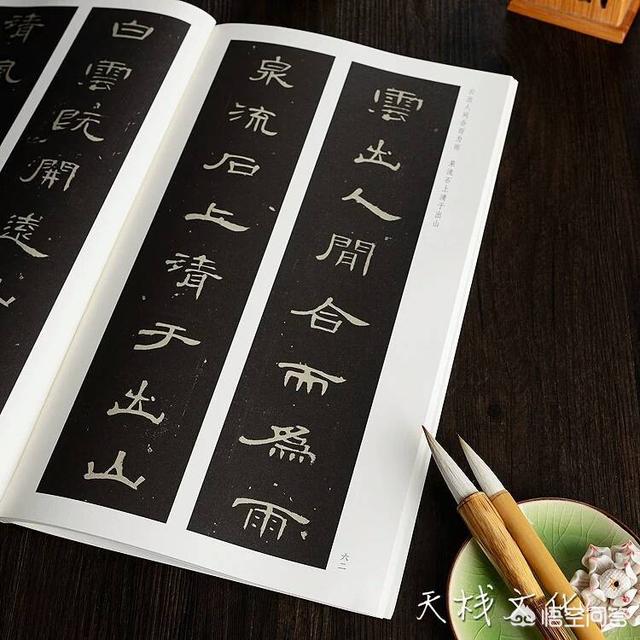 云出人间合而为雨　泉流石上清于出山
雲出人間合而為雨
泉流石上清于出山
六二
白雲既開遠山
清風
天栈文化
悟空问答